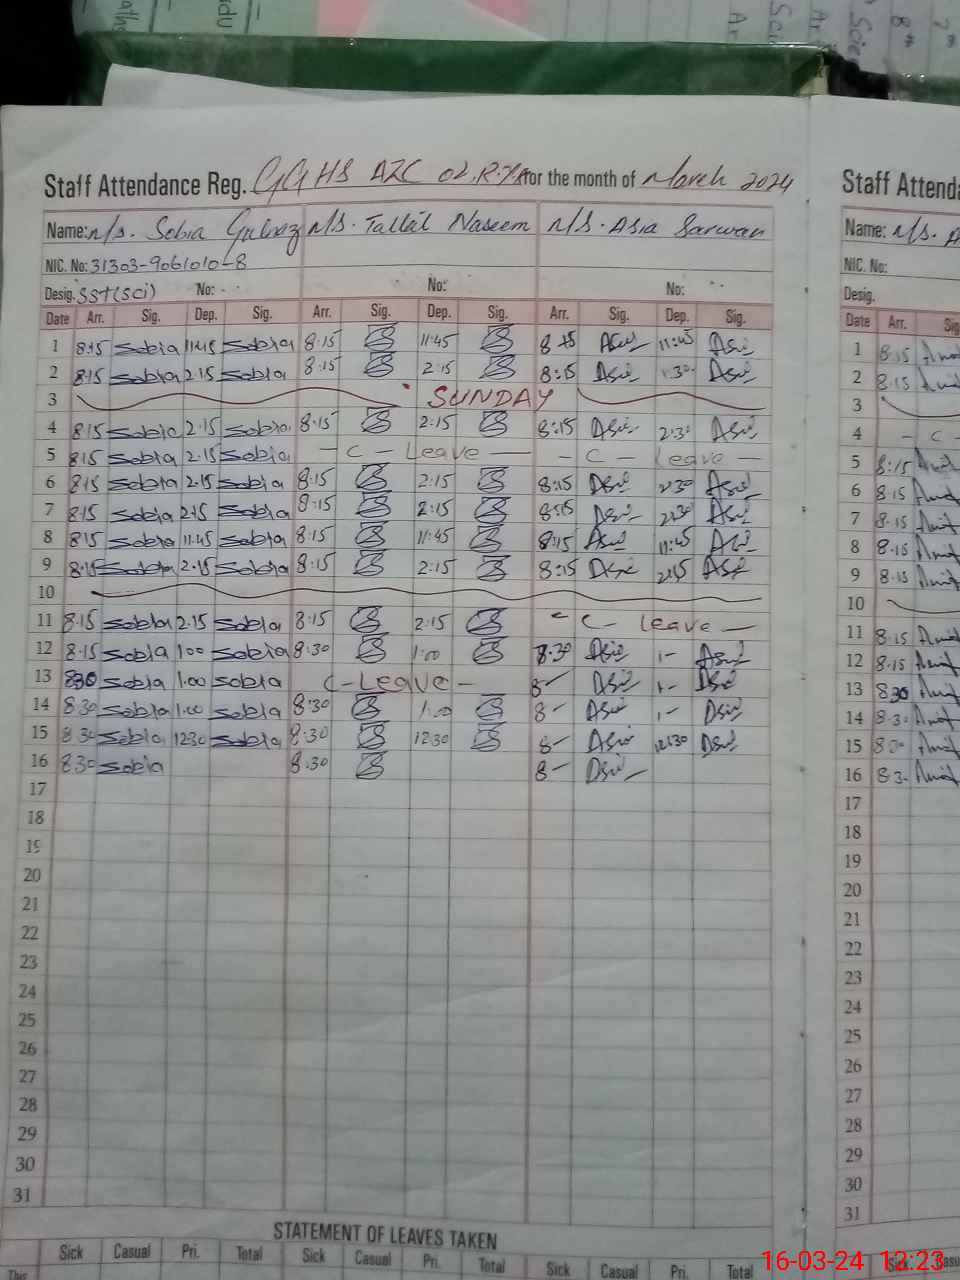 Staff Attendance Reg. GGHS AZC 02, R.Y.K for the month of March 2024
Name: M/S. Sobia Gulnaz M/S. Tallat Naseem M/S. Asia Sarwar
NIC. No: 31303-9061010-8
Desig. SST(Sci) No: No: No:
Date Arr. Sig. Dep. Sig. Arr. Sig. Dep. Sig. Arr. Sig. Dep. Sig.
1 8:15 Sobia 11:45 Sobia 8:15 11:45 8:15 Asia 11:45 Asia
2 8:15 Sobia 2:15 Sobia 8:15 2:15 8:15 Asia 1:30 Asia
3 SUNDAY
4 8:15 Sobia 2:15 Sobia 8:15 2:15 8:15 Asia 2:30 Asia
5 8:15 Sobia 2:15 Sobia - C - Leave - - C - Leave -
6 8:15 Sobia 2:15 Sobia 8:15 2:15 8:15 Asia 2:30 Asia
7 8:15 Sobia 2:15 Sobia 8:15 2:15 8:15 Asia 2:30 Asia
8 8:15 Sobia 11:45 Sobia 8:15 11:45 8:15 Asia 11:45 Asia
9 8:15 Sobia 2:15 Sobia 8:15 2:15 8:15 Asia 2:15 Asia
10
11 8:15 Sobia 2:15 Sobia 8:15 2:15 - C - Leave -
12 8:15 Sobia 1:00 Sobia 8:30 1:00 8:30 Asia 1- Asia
13 830 Sobia 1:00 Sobia C-Leave - 8- Asia 1- Asia
14 8:30 Sobia 1:00 Sobia 8:30 1:00 8- Asia 1- Asia
15 8:30 Sobia 12:30 Sobia 8:30 12:30 8- Asia 12:30 Asia
16 8:30 Sobia 8:30 8- Asia
17
18
19
20
21
22
23
24
25
26
27
28
29
30
31
STATEMENT OF LEAVES TAKEN
Sick Casual Pri. Total Sick Casual Pri. Total Sick Casual Pri. Total
This
Staff Attend
Name: M/S. A
NIC. No:
Desig.
Date Arr. Sig
1 8:15
2 8:15
3
4 - C -
5 8:15
6 8:15
7 8:15
8 8:15
9 8:15
10
11 8:15
12 8:15
13 830
14 8:30
15
16
17
18
19
20
21
22
23
24
25
26
27
28
29
30
31
Sick
16-03-24 12:23